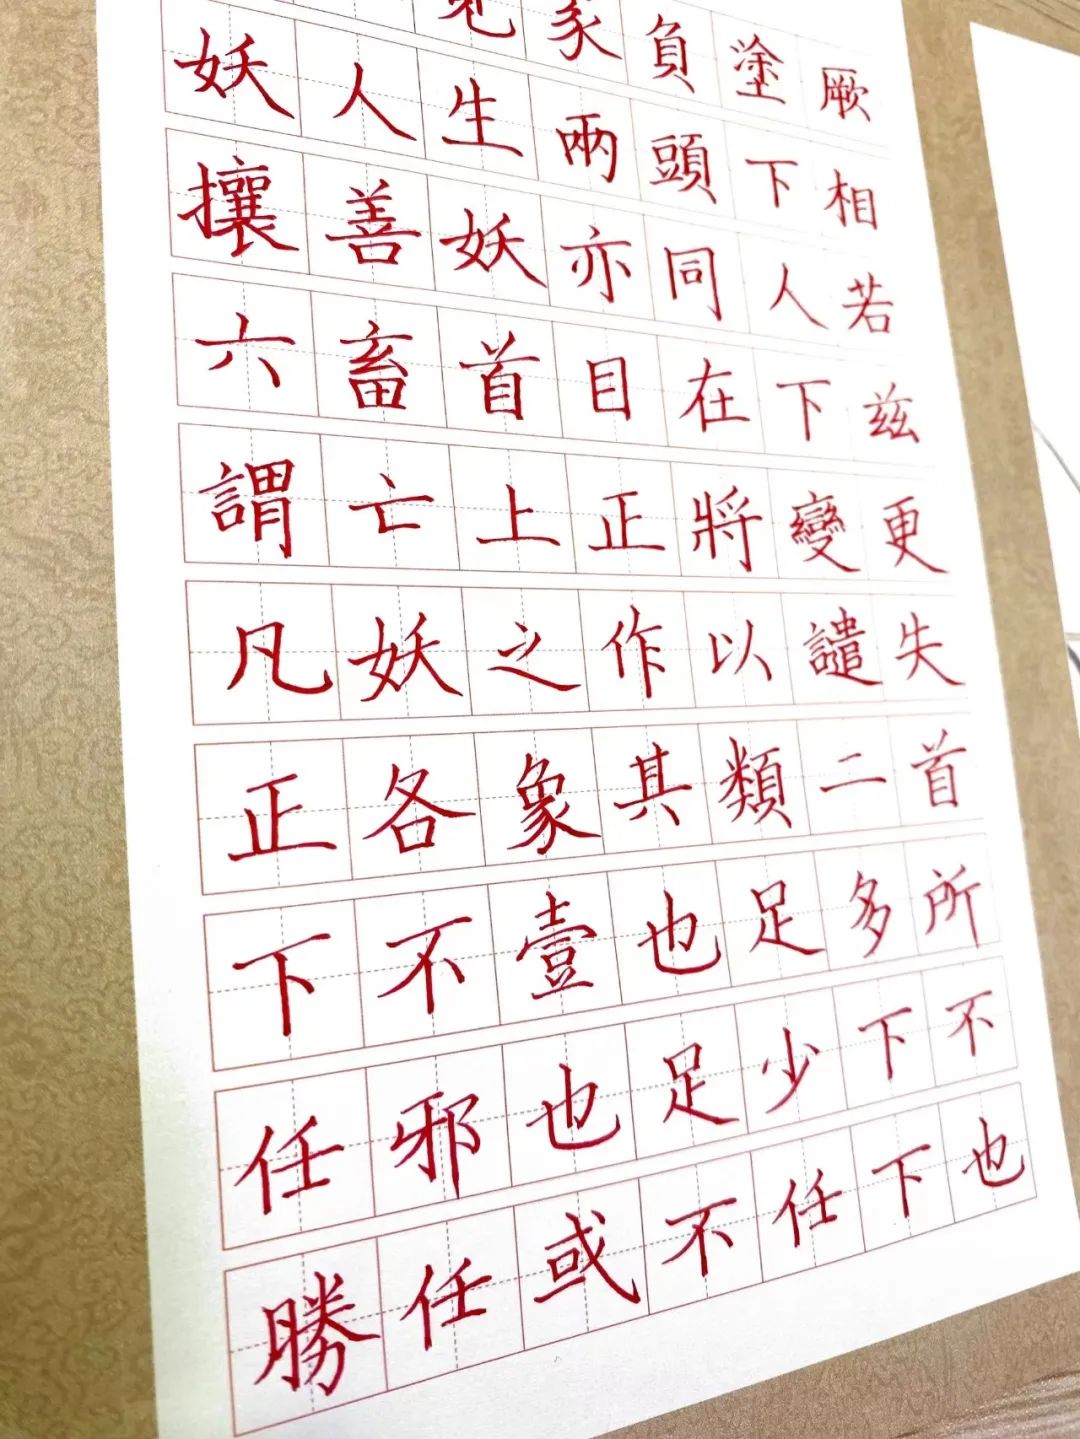 見豕負塗厥
妖人生兩頭下相
攘善妖亦同人若
六畜首目在下茲
謂亡上正將變更
凡妖之作以譴失
正各象其類二首
下不壹也足多所
任邪也足少下不
勝任或不任下也